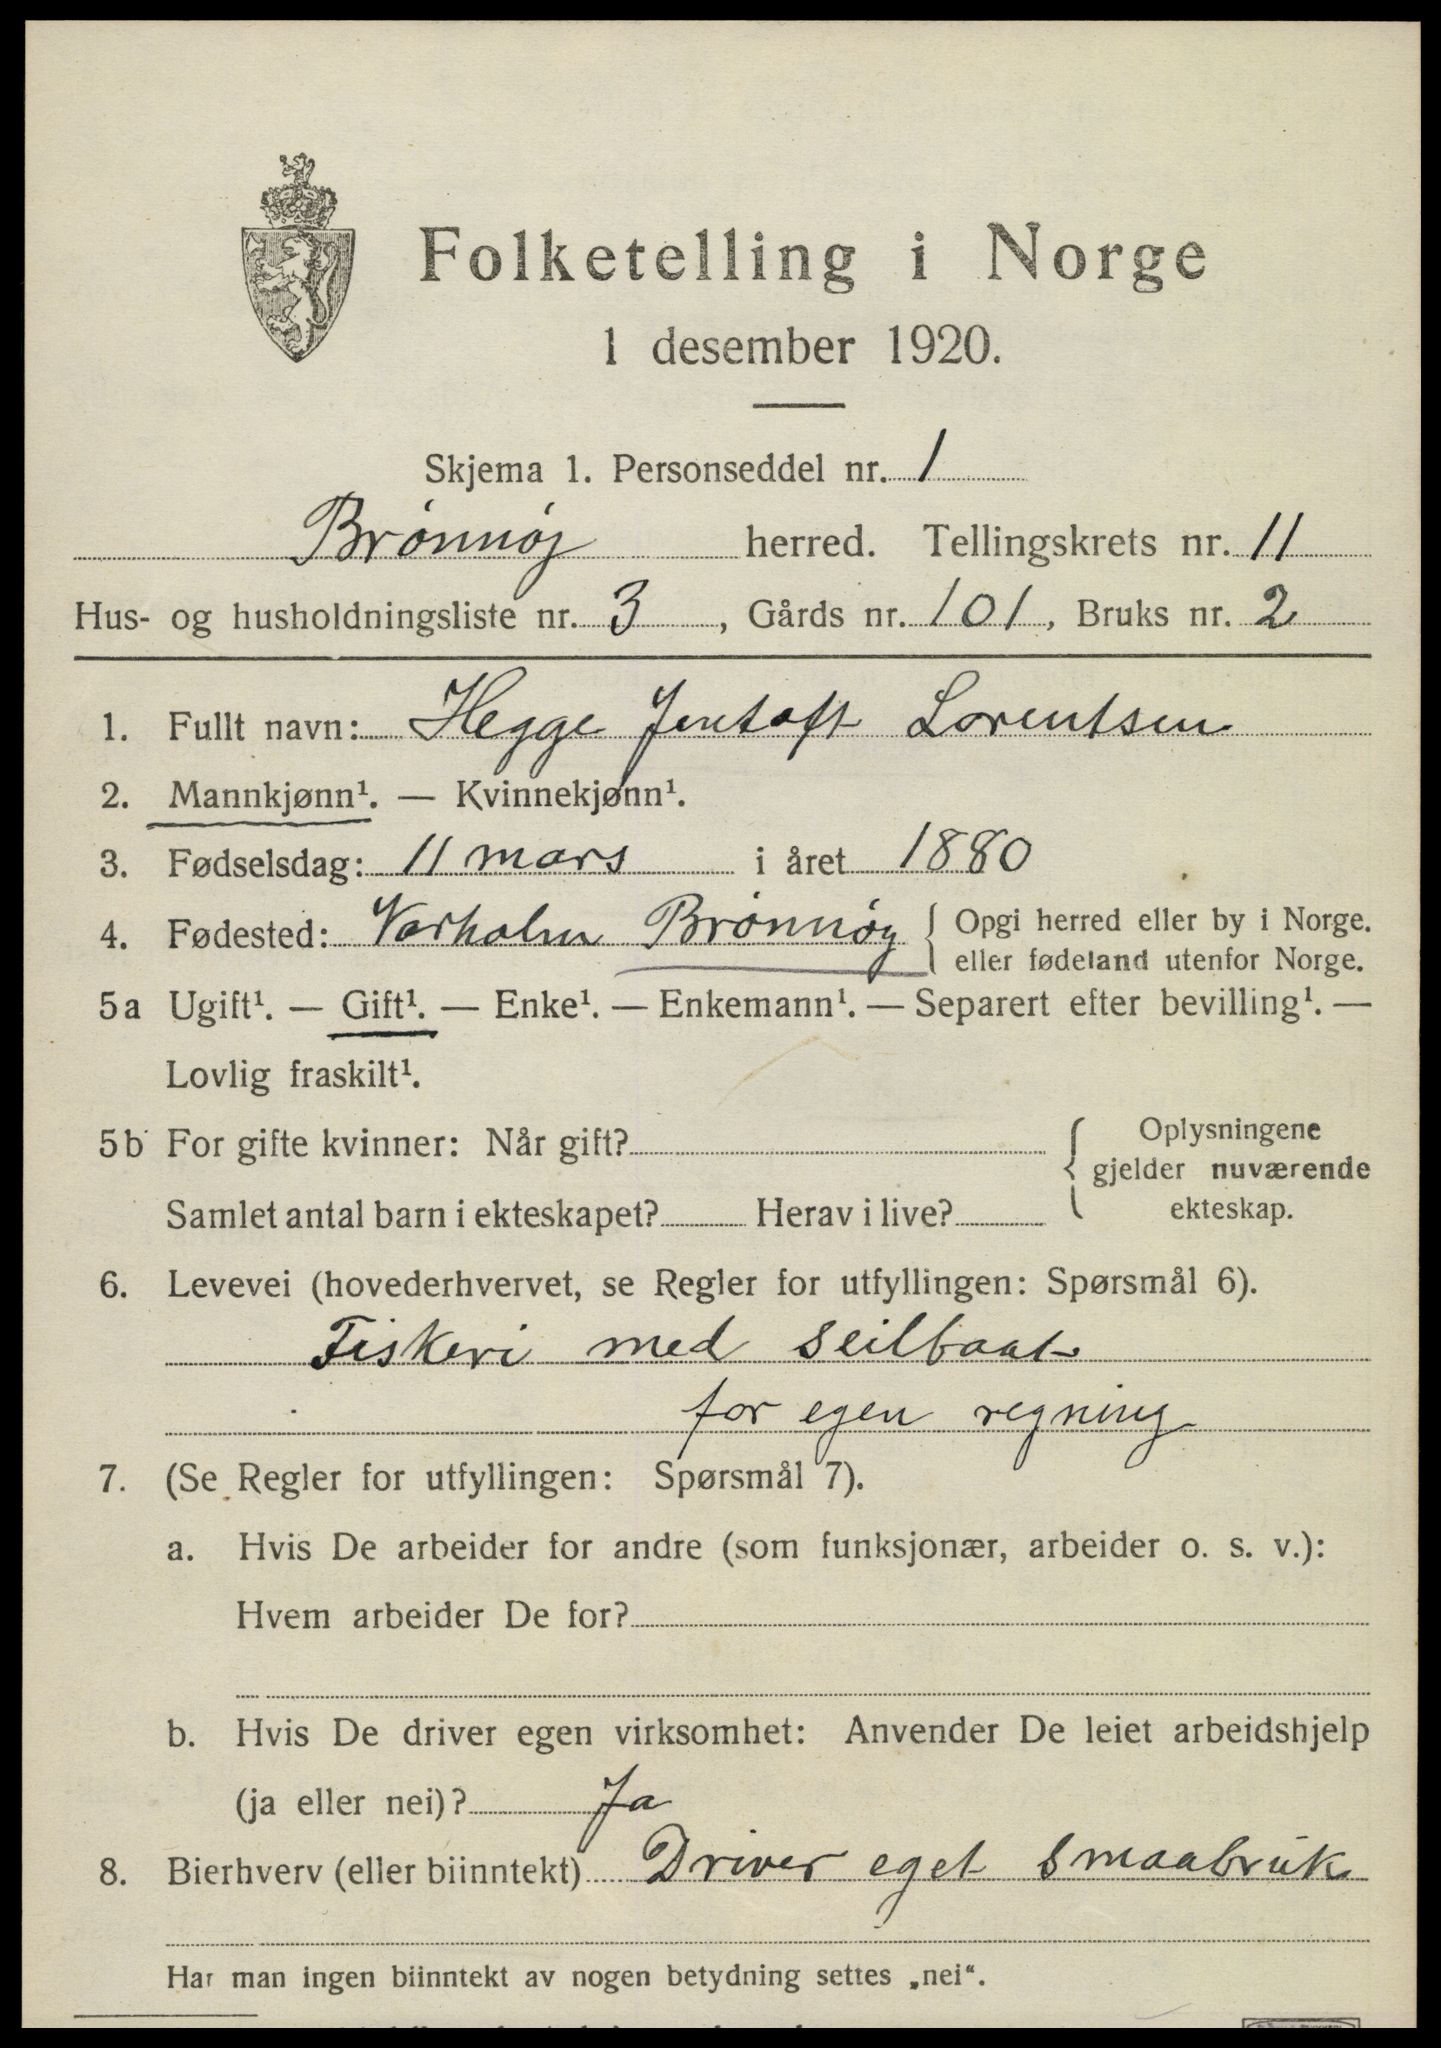 Folketelling i Norge
1 desember 1920.
Skjema 1. Personseddel nr. 1
Brönnöy herred. Tellingskrets nr. 11
Hus- og husholdningsliste nr. 3, Gårds nr. 101, Bruks nr. 2
1. Fullt navn: Hegge Jentoft Lorentsen
2. Mannkjønn¹. — Kvinnekjønn¹.
3. Fødselsdag: 11 mars i året 1880
4. Fødested: Brönnöy { Opgi herred eller by i Norge.
eller fødeland utenfor Norge.
5a Ugift¹. — Gift¹. — Enke¹. — Enkemann¹. — Separert efter bevilling¹. —
Lovlig fraskilt¹.
5b For gifte kvinner: Når gift? { Oplysningene
gjelder nuværende
ekteskap.
Samlet antal barn i ekteskapet? Herav i live?
6. Levevei (hovederhvervet, se Regler for utfyllingen: Spørsmål 6).
Fiskeri med seilbaat
for egen regning
7. (Se Regler for utfyllingen: Spørsmål 7).
a. Hvis De arbeider for andre (som funksjonær, arbeider o. s. v.):
Hvem arbeider De for?
b. Hvis De driver egen virksomhet: Anvender De leiet arbeidshjelp
(ja eller nei)? Ja
8. Bierhverv (eller biinntekt) Driver eget smaabruk
Har man ingen biinntekt av nogen betydning settes „nei“.